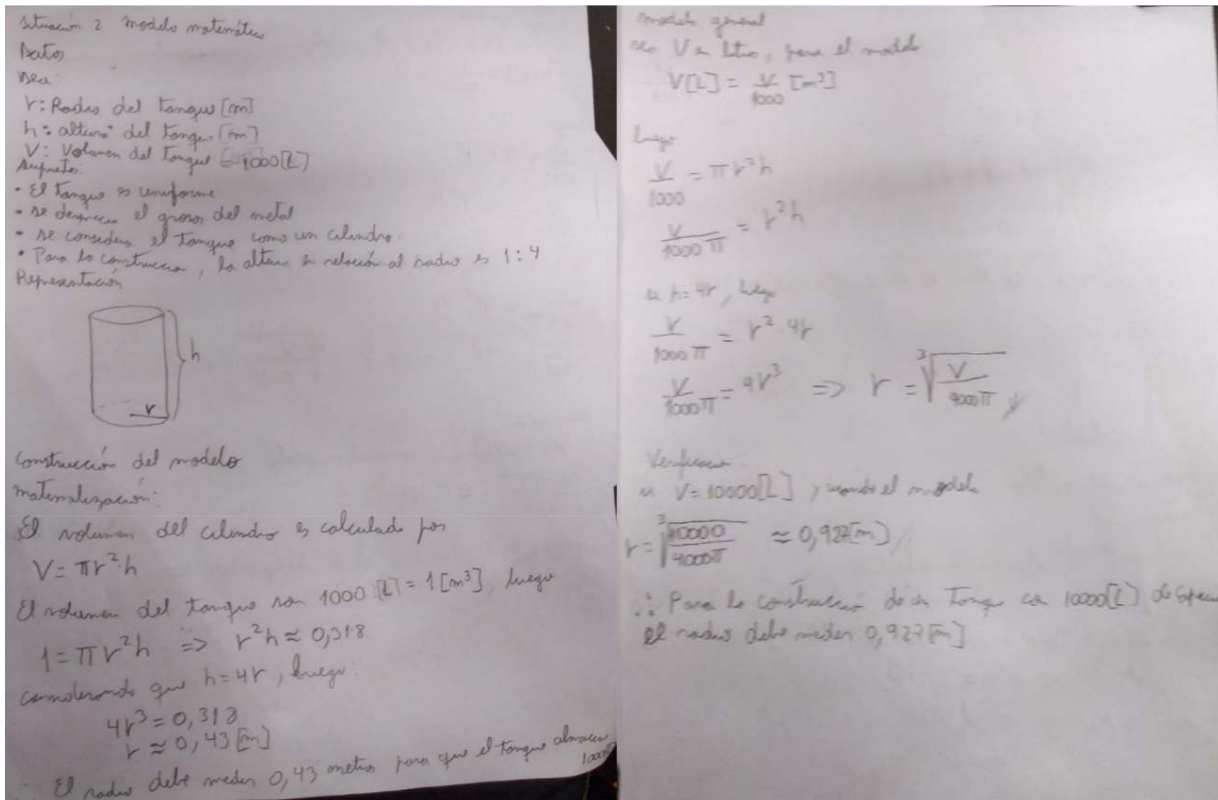 Situación 2 Modelo matemático
Datos
Sea:
r: Radio del tanque [m]
h: altura del tanque [m]
V: Volumen del tanque = 1000[L]
Supuestos:
• El tanque es uniforme
• se desprecia el grosor del metal
• se considera el tanque como un cilindro.
• Para la construcción, la altura en relación al radio es 1:4
Representación
h
r
Construcción del modelo
matematización:
El volumen del cilindro es calculado por
V = πr²h
El volumen del tanque son 1000 [L] = 1 [m³], luego
1 = πr²h => r²h ≈ 0,318
considerando que h = 4r, luego:
4r³ = 0,318
r ≈ 0,43 [m]
El radio debe medir 0,43 metros para que el tanque almacene
modelo general
sea V en litros, para el modelo
V[L] = V/1000 [m³]
luego
V/1000 = πr²h
V/1000π = r²h
si h = 4r, luego
V/1000π = r² 4r
V/1000π = 4r³ => r = ³√(V/4000π)
Verificación
si V = 10000[L], usando el modelo
r = ³√(10000/4000π) ≈ 0,927[m]
∴ Para la construcción de un Tanque con 10000[L] de
el radio debe medir 0,927[m]